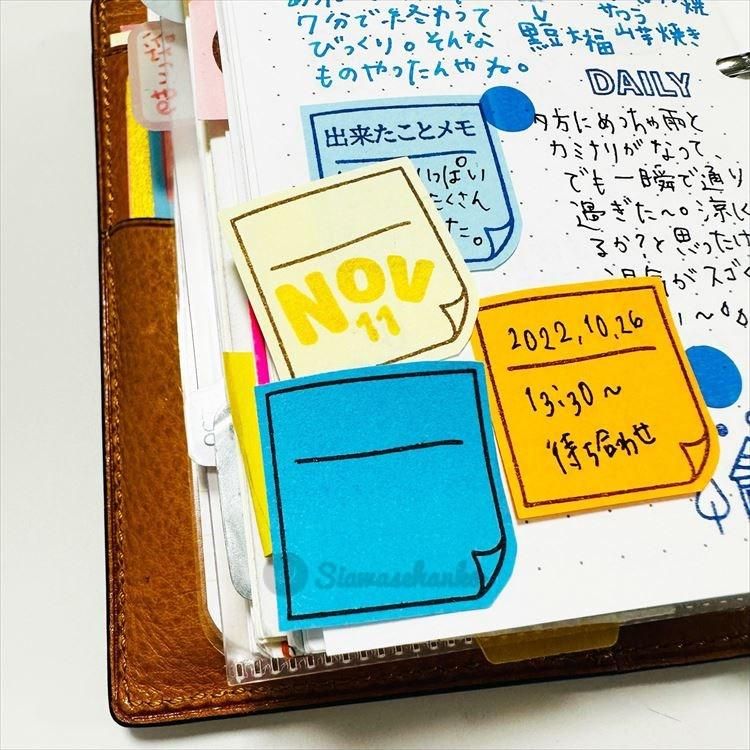 7分で冬終わって
びっくり。そんな
ものやったんやね。
黒豆大福 山芋焼き
DAILY
夕方にめっちゃ雨と
カミナリがなって、
でも一瞬で通り
過ぎた〜。涼しく
るか？と思ったけ
湿気がスゴく
出来たことメモ
いっぱい
たくさん
た。
NOV
11
2022.10.26
13:30〜
待ち合わせ
Siawasehanko